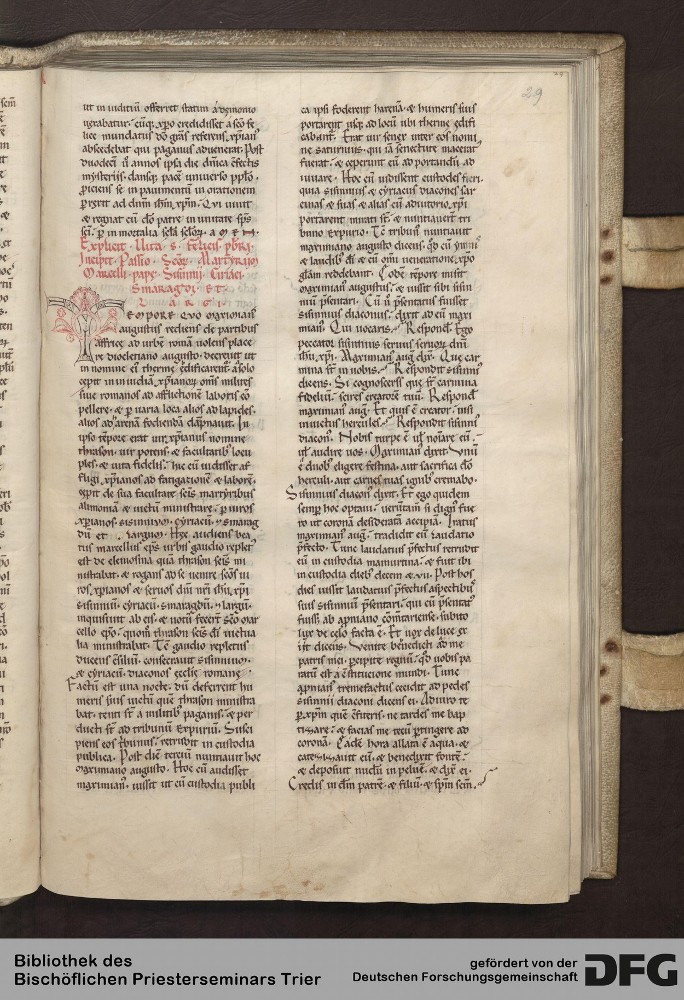 29
ut in iuditiū offerret statim a demonio
uexabatur. cūq; xp̄o credidisset a sc̄o fe
lice mundatus dō grās referens. xp̄ianꝰ
abscedebat qui paganus aduenerat. Post
duodecī ū annos ipsa die dn̄ica cōfectis
mysteriis. dansq; pacē uniuerso pp̄lo.
ꝓiciens se in pauimentū in orationem
ꝑrexit ad dn̄m ih̄m xp̄m. Qui uiuit
& regnat cū dō patre in unitate sp̄s
sc̄i. ꝑ in mortalia sc̄la sc̄lorū. A M E N
Explicit Uita S. Felicis pb̄ri.
Incipit Passio Scōr Martyrum
Marcelli pape. Sisinnii. Ciriaci.
Smaragdi et
Largi.
TEMPORE quo maximianꝰ
augustus rediens de partibus
affrice ad urbē romā uolens place
re diocletiano augusto. decreuit ut
in nomine eiꝰ therme ędificarent a solo
cepit in inuidiā xp̄ianoꝝ om̄s milites
siue romanos ad afflictionē laboris cō
pellere. & ꝑ uaria loca alios ad lapides.
alios ad arenā fodiendā dāpnauit. In
ipso tēpore erat uir xp̄ianus nomine
thrason. uir potens. & facultatibꝰ locu
ples. & uita fidelis. Hic cū uidisset af
fligi xp̄ianos ad fatigationē & laborē.
cepit de sua facultate sc̄is martyribus
alimoniā & uictū ministrare. ꝑ uiros
xp̄ianos. sisinniū. cyriacū. smarag
dū et largum. Hęc audiens bea
tus marcellus ep̄s urbis gaudio repletꝰ
est de elemosina quā thrason sc̄is mi
nistrabat. & rogans ad se uenire sc̄os ui
ros. xp̄ianos & seruos dn̄i nr̄i ih̄u xp̄i
sisinniū. cyriacū. smaragdū. largū.
inquisiuit ab eis. & notū fecert sc̄o mar
cello ep̄o. quom̄ thrason sc̄is dī uictua
lia ministrabat. Tc̄ gaudio repletus
ducens cōsiliū. consecrauit sisinniū.
& cyriacū. diaconos ęcclię romanę
Factū est una nocte. dū deferrent hu
meris suis uictū quē thrason ministra
bat. tenti sr̄ a militibꝰ paganis. & per
ducti sr̄ ad tribunū Expuriū. Susci
piens eos tribunꝰ. retrudit in custodia
publica. Post diē terciū nuntiauit hoc
maximiano augusto. Hoc cū audisset
maximianꝰ. iussit ut cū custodia publi
ca ipsi foderent harenā. & humeris suis
portarent usq; ad locū ubi therme ędifi
cabant. Erat uir senex inter eos nomi
ne saturninus. qui iā senectute maceratꝰ
fuerat. & ceperunt eū ad portandū ad
iuuare. Hoc cū uidissent custodes fieri
quia sisinnius & cyriacus diacones sar
cinas & suas & alias cū adiutorio xp̄i
portarent mirati sr̄. & nuntiauert tri
buno expurio. Tc̄ tribunꝰ nuntiauit
maximiano augusto dicens. qd̄ cū ymnis
& laudibꝰ dī & cū om̄i ueneratione xp̄o
glam reddebant. Eodē tēpore misit
maximianꝰ augustꝰ. & iussit sibi sisin
niū p̄sentari. Cū ū p̄sentatus fuisset
sisinnius diaconus. dixit ad eū maxi
mianꝰ. Qui uocaris. Respondit. Ego
peccator sisinnius seruus seruorū dn̄i
ih̄u xp̄i. Maximianꝰ aug̅ dix̄. Que car
mina sr̄ in nobis. Respondit sisinniꝰ
dicens. Si cognosceres que sr̄ carmina
fideliū. scires creatorē tuū. Respondit
maximianꝰ aug. Et quis ē creator. nisi
inuictus hercules. Respondit sisinniꝰ
diaconꝰ. Nobis turpe ē ut nosare eū
ut audire uos. Maximianꝰ dixit. Unū
ē duobꝰ eligere festina. aut sacrifica dō
herculi. aut carnes tuas ignibꝰ cremabo.
Sisinniꝰ diaconꝰ dixit. Et ego quidem
semꝑ hoc optaui. ueruntam̄ si dignꝰ fue
ro ut coronā desideratā accipiā. Iratus
maximianꝰ aug̅. tradidit eū laudatio
p̄fecto. Tunc laudatius p̄fectus retrudit
eū in custodia mamurtina. & fuit ibi
in custodia diebꝰ decem & vii. Post hos
dies iussit laudatius p̄fectus aspectibus
suis sisinniū p̄sentari. qui cū p̄sentatꝰ
fuiss̄ ab aproniano cōmentariense. subito
lux de celo facta ē. Et uox de luce ex
iit dicens. Venite benedicti ad me
patris mei. percipite regnū. qd̄ uobis pa
ratū est a cōstitucione mundi. Tunc
apronianꝰ tremefactus cecidit ad pedes
sisinnii diaconi dicens ei. Adiuro te
ꝑ xp̄m quē cōfiteris. ne tardes me bap
tizare. & facias me tecū pertingere ad
coronā. Eadē hora allata ē aqua. &
catezizauit eū. & benedixit fontē.
& deposuit nudū in peluē. & dix̄ ei.
Credis in dm̄ patrē. & filiū. & sp̄m scm̄.
Bibliothek des
Bischöflichen Priesterseminars Trier
gefördert von der
Deutschen Forschungsgemeinschaft
DFG